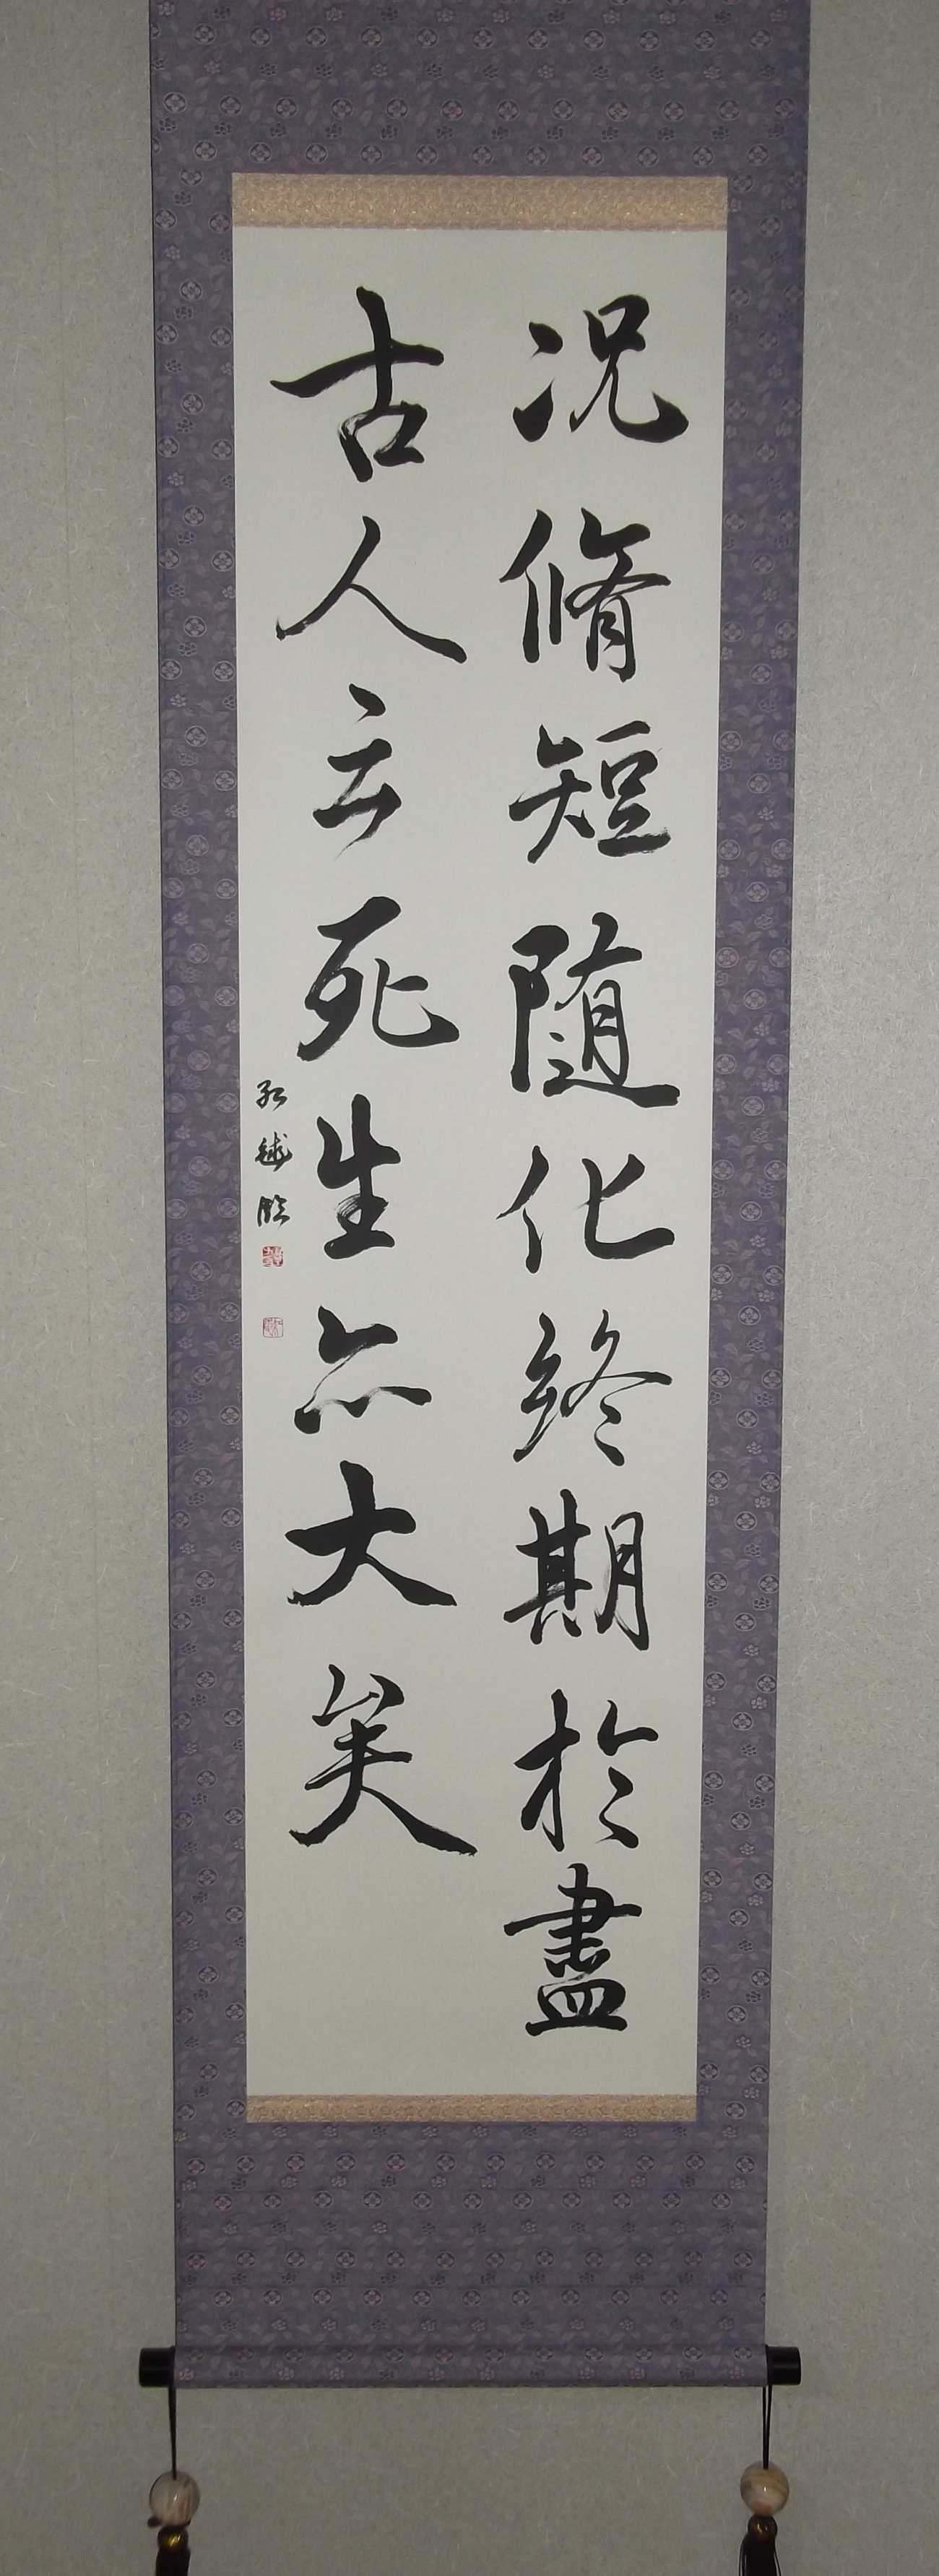 況脩短随化終期於盡
古人云死生亦大矣